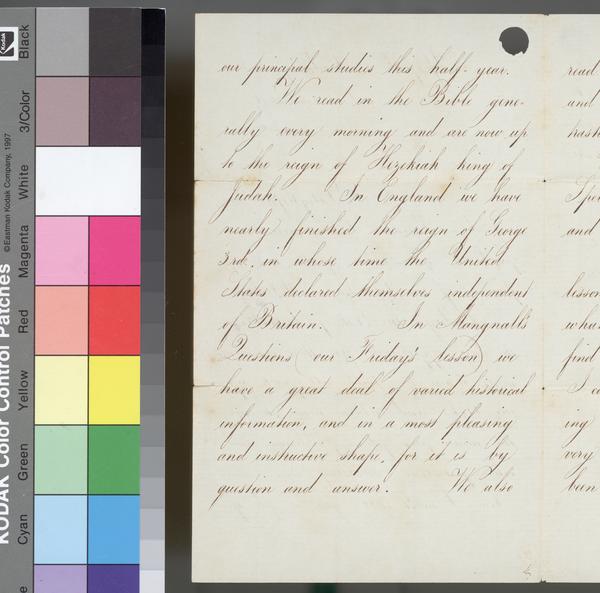 our principal studies this half-year.
We read in the Bible gene-
rally every morning and are now up
to the reign of Hezekiah king of
Judah. In England we have
nearly finished the reign of George
3rd. in whose time the United
States declared themselves independent
of Britain. In Mangnall's
Questions (our Friday's lesson) we
have a great deal of varied historical
information, and in a most pleasing
and instructive shape, for it is by
question and answer. We also
read
and
and
lesson
what
find
ing
very
been
KODAK Color Control Patches
©Eastman Kodak Company, 1997
Kodak
Black
3/Color
White
Magenta
Red
Yellow
Green
Cyan